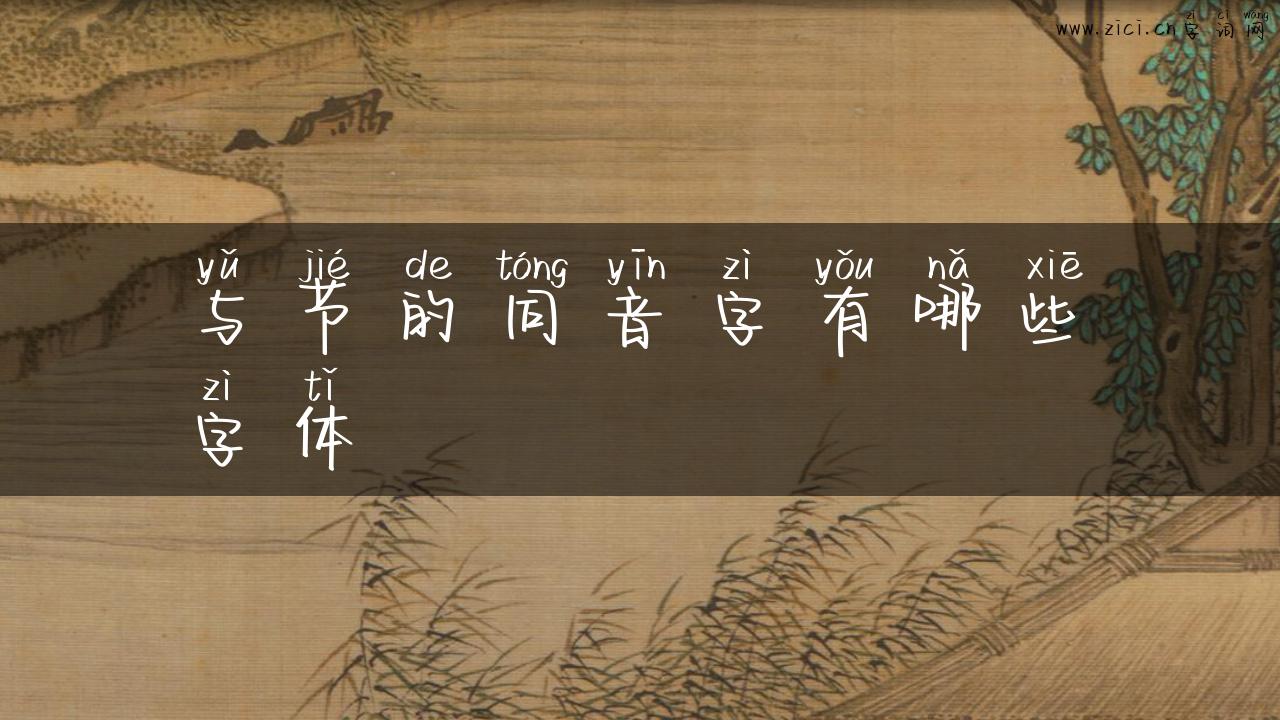 zì cí wǎng
www.zici.cn字词网
yǔ jié de tóng yīn zì yǒu nǎ xiē
与节的同音字有哪些
zì tǐ
字体